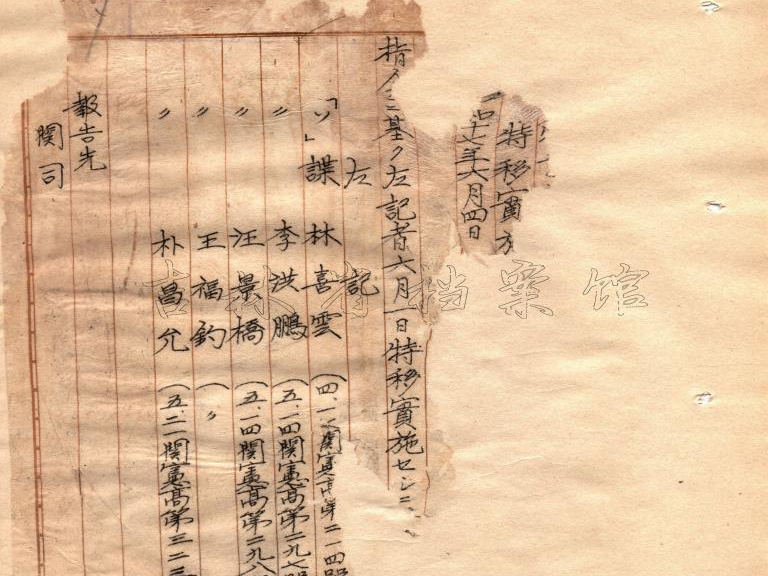 特移實
十七年六月四日
指 ニ基ク左記者六月一日特移實施セシニ
左記
「ソ」諜 林喜雲 (四、一 関憲高第二一四号
〃 李洪鵬 (五、一四関憲高第二九七号
〃 汪景橋 (五、一四関憲高第二九八
〃 王福鈞 ( 〃
〃 朴昌允 (五、二一関憲高第三二三
報告先
関司
吉林省档案馆